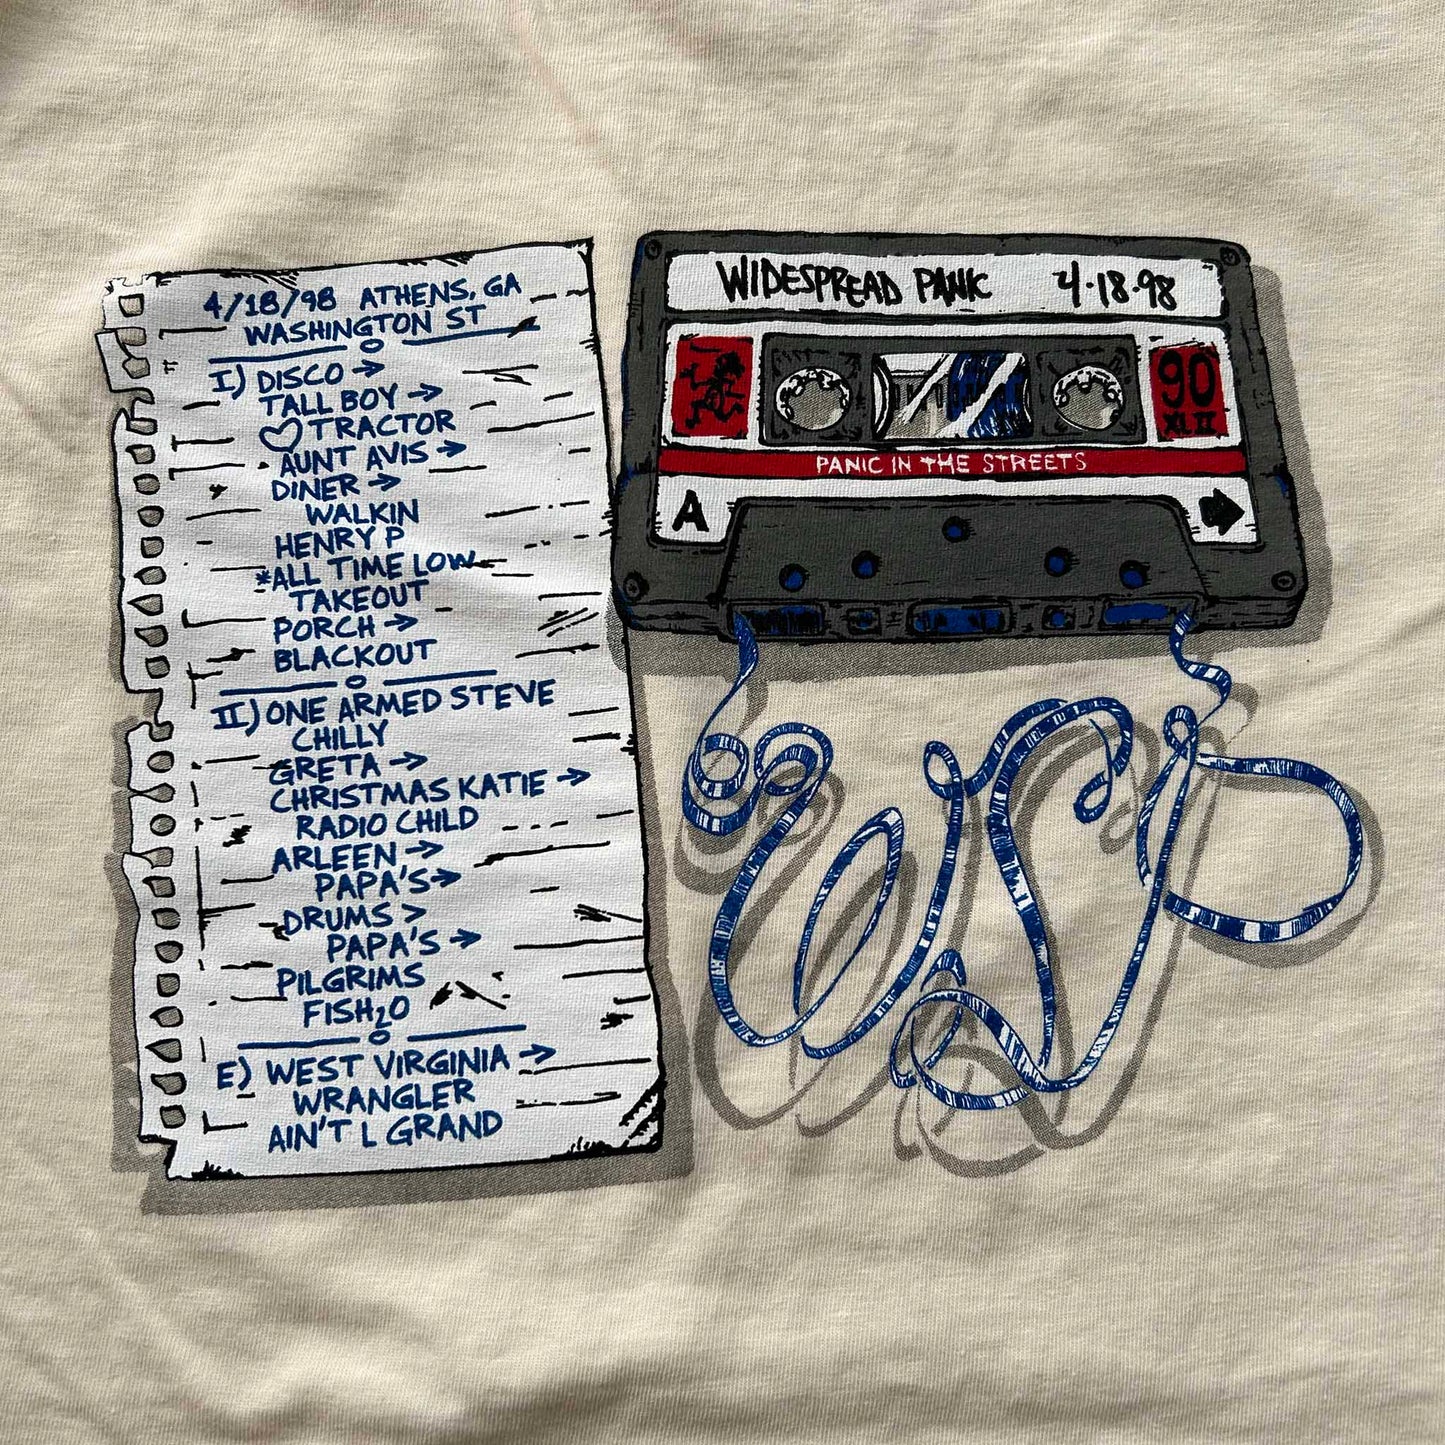 4/18/98 ATHENS, GA
WASHINGTON ST
I) DISCO →
TALL BOY →
♡ TRACTOR
AUNT AVIS →
DINER →
WALKIN
HENRY P
*ALL TIME LOW
TAKEOUT
PORCH →
BLACKOUT
II) ONE ARMED STEVE
CHILLY
GRETA →
CHRISTMAS KATIE →
RADIO CHILD
ARLEEN →
PAPA'S →
DRUMS >
PAPA'S →
PILGRIMS
FISH₂O
E) WEST VIRGINIA →
WRANGLER
AIN'T L GRAND
WIDESPREAD PANIC 4·18·98
90
XL II
PANIC IN THE STREETS
A
WSP